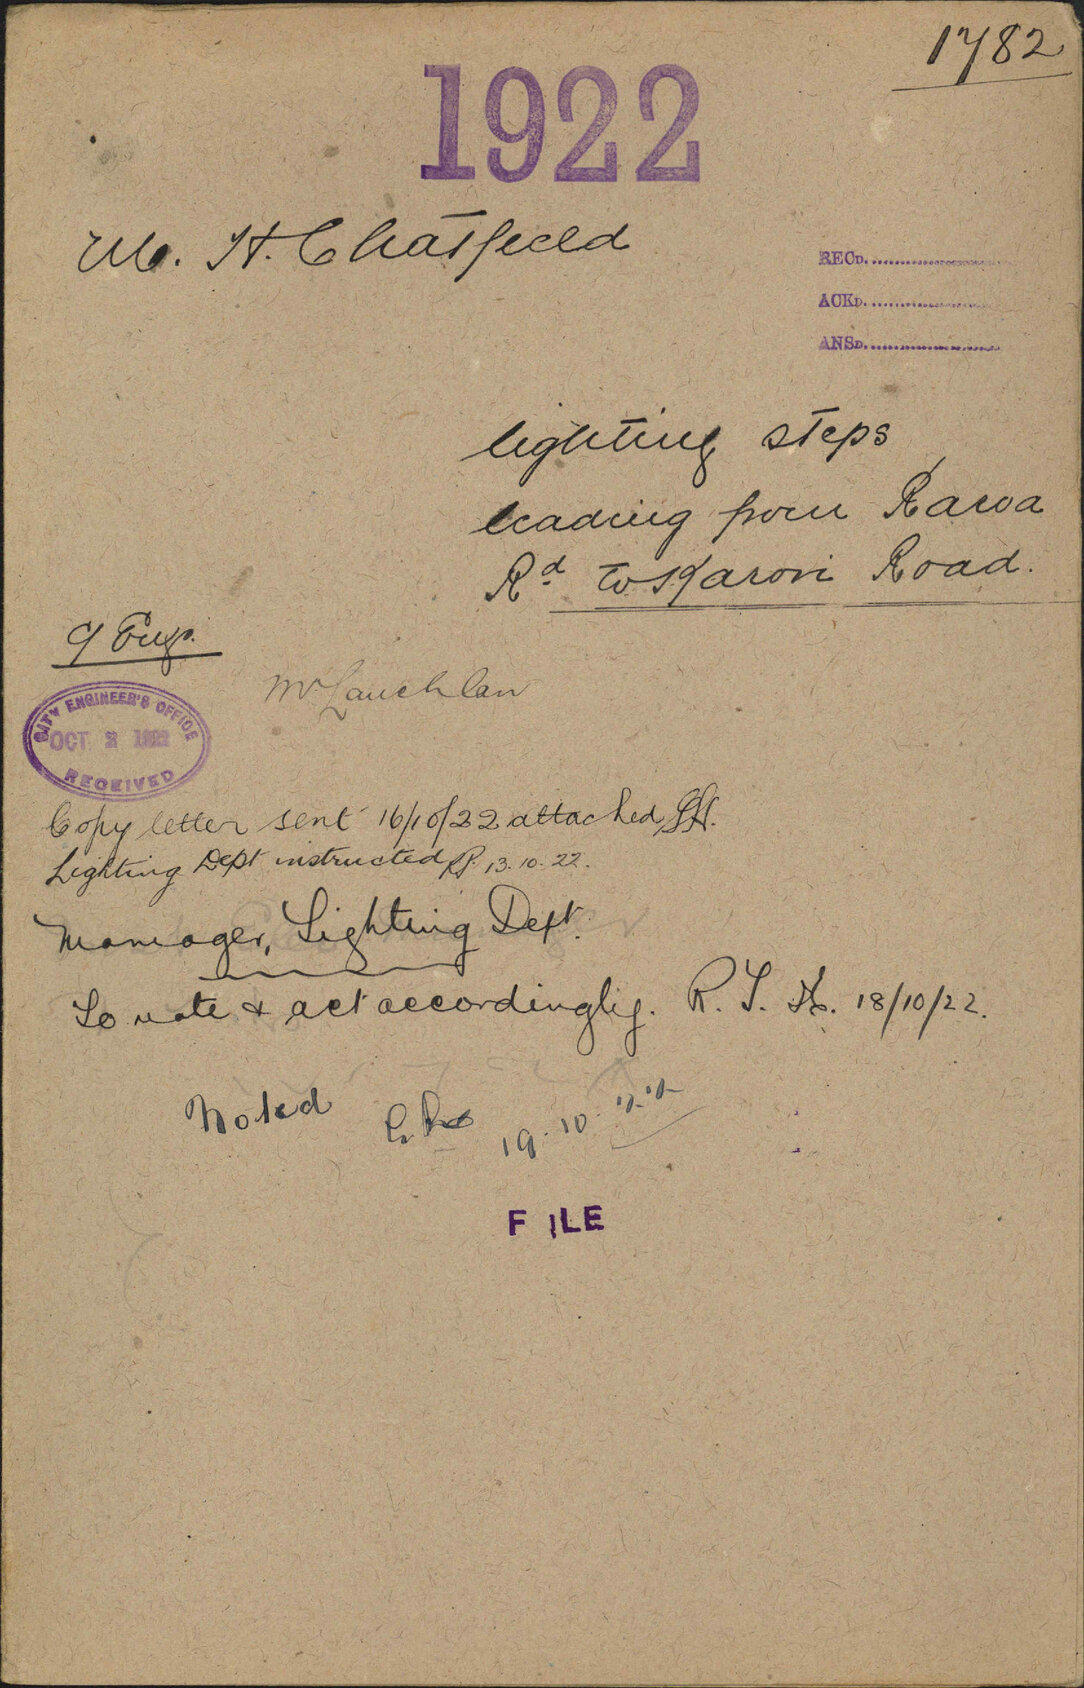 1782
1922
W. H. Chatfield
RECD.
ACKD.
ANSD.
lighting steps
leading from Raroa
Rd to Karori Road.
C/ Eng.
McLauchlan
CITY ENGINEER'S OFFICE
OCT 2 1922
RECEIVED
Copy letter sent 16/10/22 attached
Lighting Dept instructed 13.10.22.
Manager, Lighting Dept.
To note & act accordingly. R. T. 18/10/22.
Noted 19.10.22
FILE